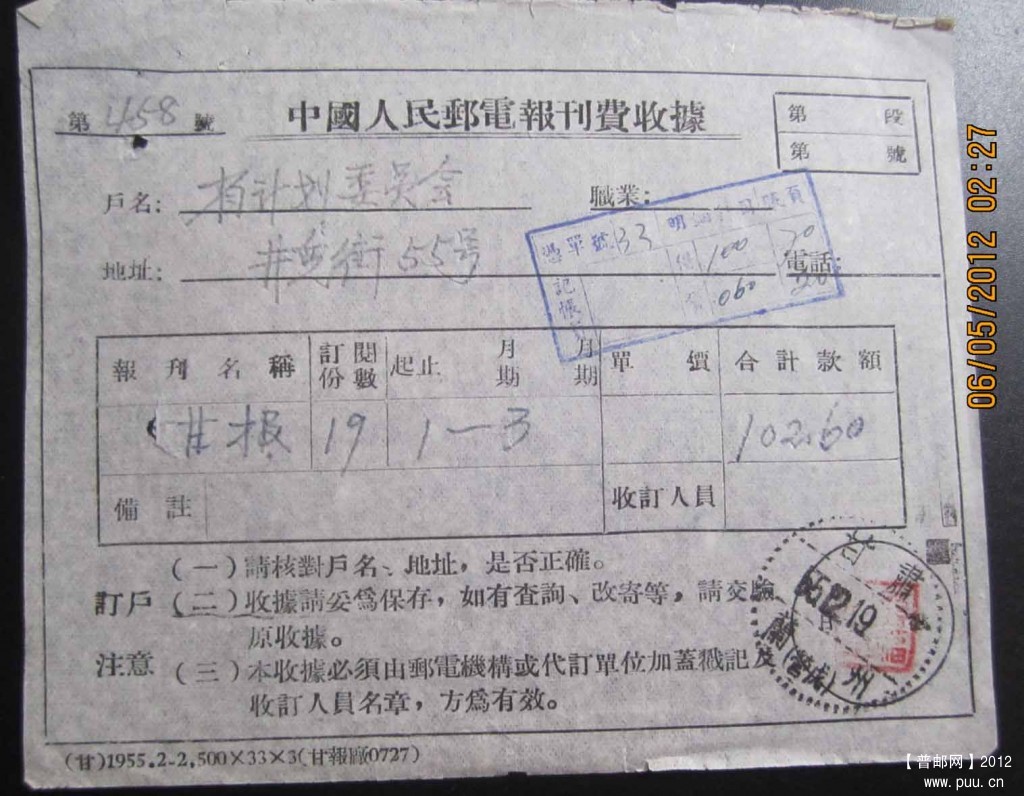 第 458 號
中國人民郵電報刊費收據
第 段
第 號
戶名: 计划委员会
職業:
地址: 街55号
電話:
憑單號 33 明細 頁
記帳
100 20
060
報刊名稱 訂閱份數 起止 月期 月期 單價 合計款額
甘报 19 1—3 102.60
備註 收訂人員
訂戶注意
(一)請核對戶名、地址,是否正確。
(二)收據請妥爲保存,如有查詢、改寄等,請交驗
原收據。
(三)本收據必須由郵電機構或代訂單位加蓋戳記及
收訂人員名章,方爲有效。
甘肅
55.12.19
蘭州
(甘)1955.2-2,500×33×3(甘報廠0727)
06/05/2012 02:27
【普邮网】2012
www.puu.cn